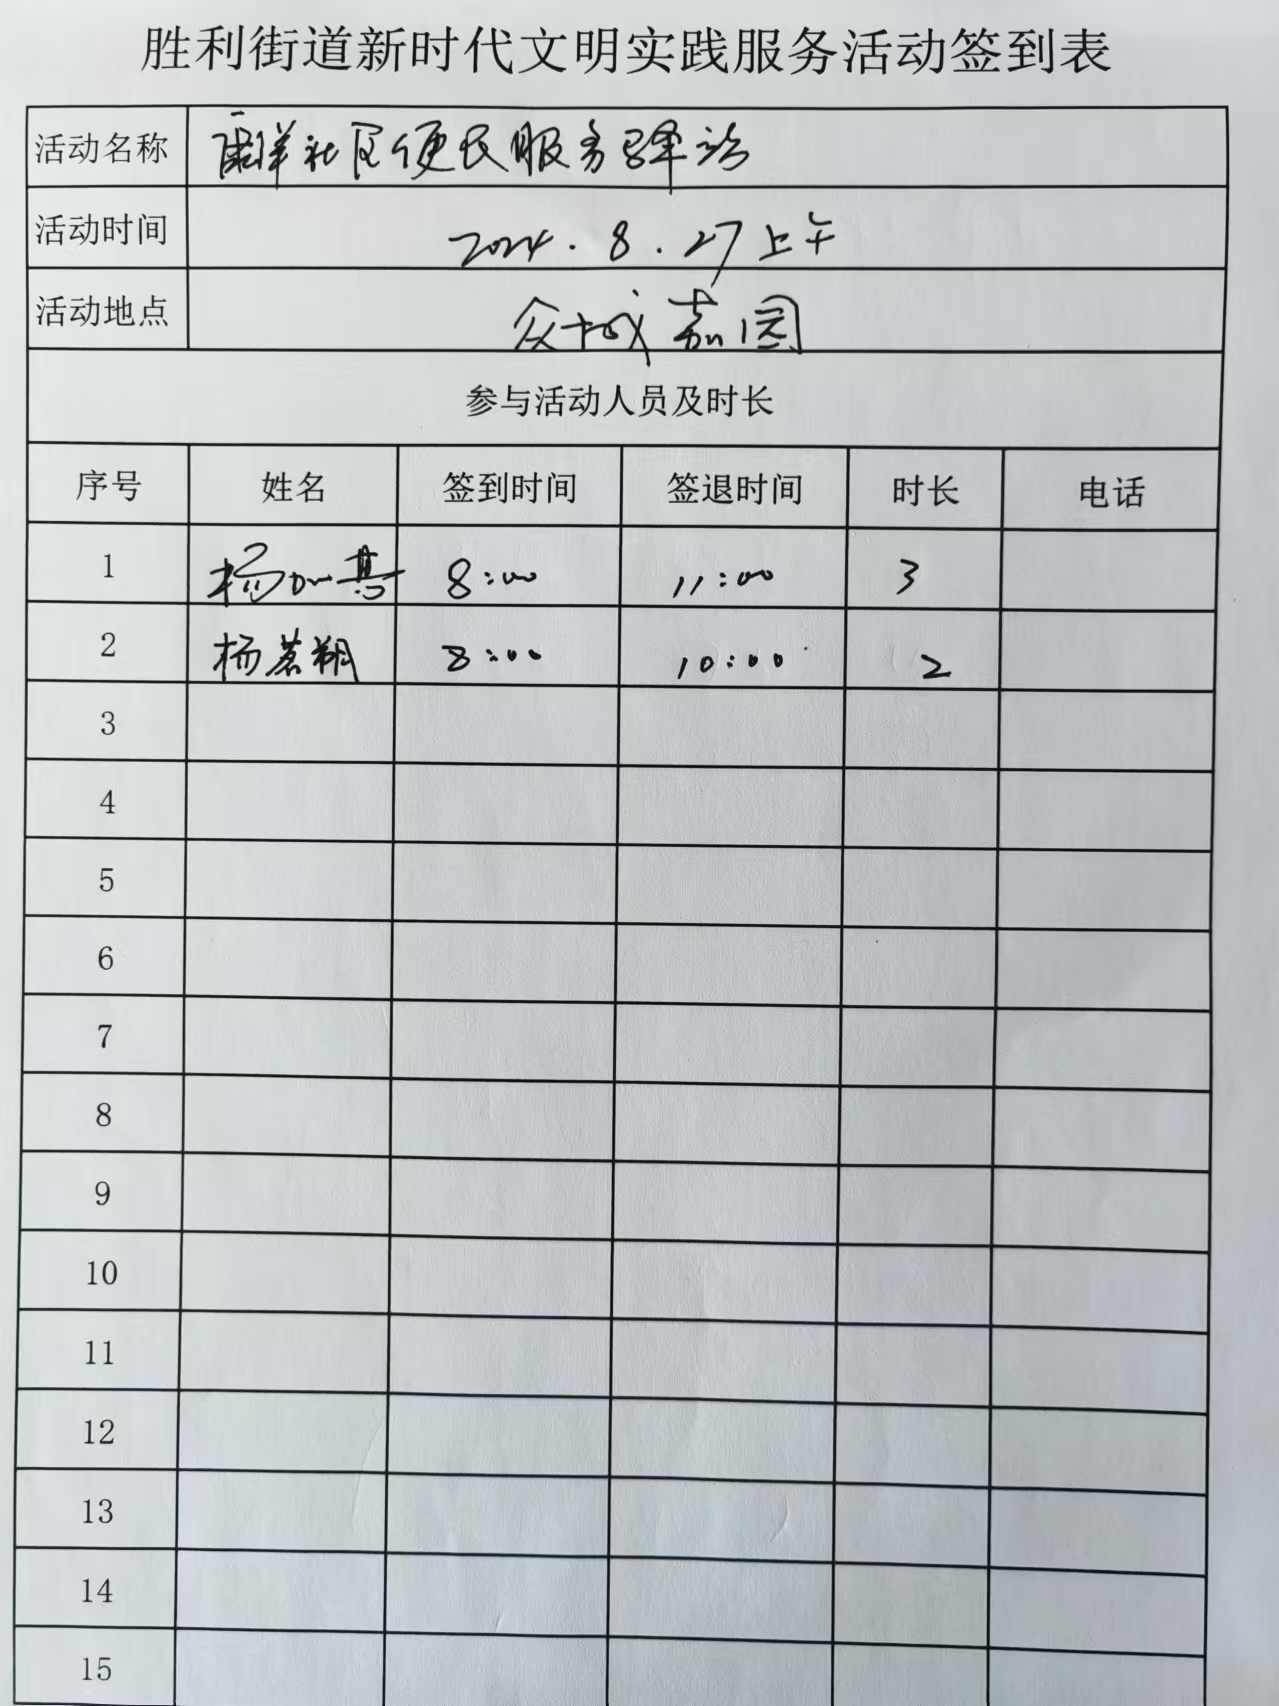 胜利街道新时代文明实践服务活动签到表
活动名称 社区便民服务驿站
活动时间 2024.8.27上午
活动地点 众城嘉园
参与活动人员及时长
序号 姓名 签到时间 签退时间 时长 电话
1 杨 8:00 11:00 3
2 杨茗翔 8:00 10:00 2
3
4
5
6
7
8
9
10
11
12
13
14
15